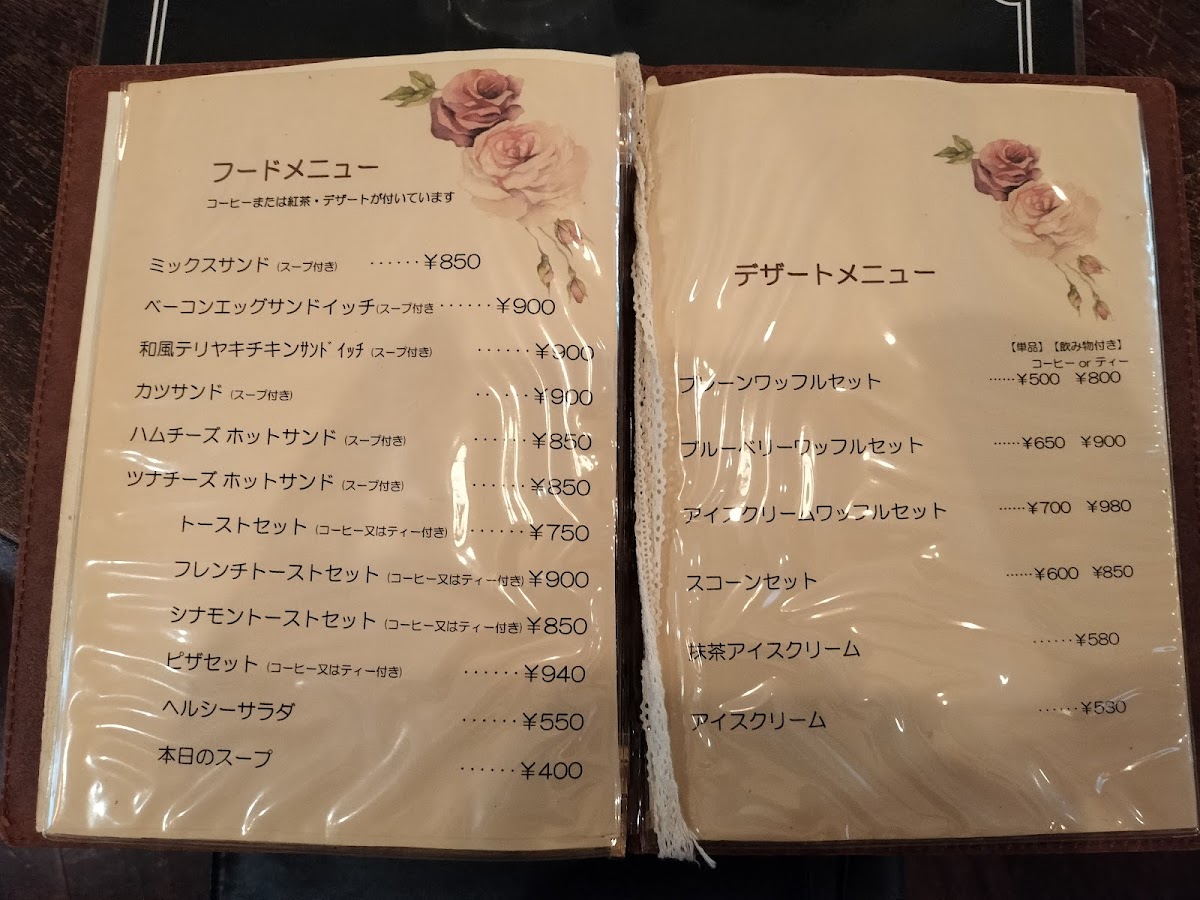 フードメニュー
コーヒーまたは紅茶・デザートが付いています
ミックスサンド (スープ付き) ······¥850
ベーコンエッグサンドイッチ(スープ付き ······¥900
和風テリヤキチキンｻﾝﾄﾞｲｯﾁ (スープ付き) ······¥900
カツサンド (スープ付き) ······¥900
ハムチーズ ホットサンド (スープ付き) ······¥850
ツナチーズ ホットサンド (スープ付き) ······¥850
トーストセット (コーヒー又はティー付き) ······¥750
フレンチトーストセット (コーヒー又はティー付き) ¥900
シナモントーストセット (コーヒー又はティー付き) ¥850
ピザセット (コーヒー又はティー付き) ······¥940
ヘルシーサラダ ······¥550
本日のスープ ······¥400
デザートメニュー
【単品】【飲み物付き】
コーヒー or ティー
プレーンワッフルセット ······¥500 ¥800
ブルーベリーワッフルセット ······¥650 ¥900
アイスクリームワッフルセット ······¥700 ¥980
スコーンセット ······¥600 ¥850
抹茶アイスクリーム ······¥580
アイスクリーム ······¥530